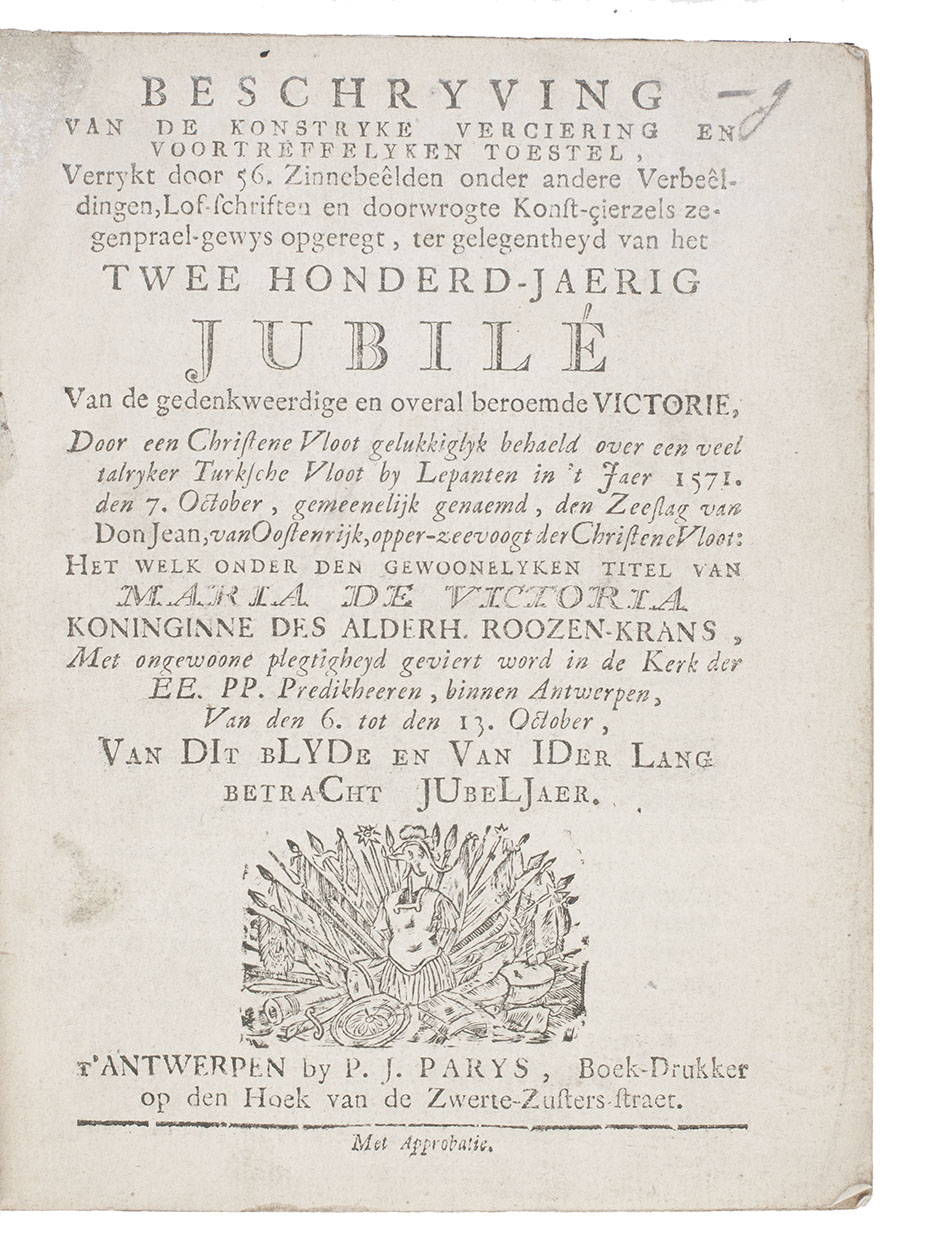 BESCHRYVING
VAN DE KONSTRYKE VERCIERING EN
VOORTREFFELYKEN TOESTEL,
Verrykt door 56. Zinnebeêlden onder andere Verbeêl-
dingen, Lof-ſchriften en doorwrogte Konſt-çierzels ze-
genprael-gewys opgeregt, ter gelegentheyd van het
TWEE HONDERD-JAERIG
JUBILÉ
Van de gedenkweerdige en overal beroemde VICTORIE,
Door een Chriſtene Vloot gelukkiglyk behaeld over een veel
talryker Turkſche Vloot by Lepanten in 't Jaer 1571.
den 7. October, gemeenelijk genaemd, den Zeeſlag van
Don Jean, van Ooſtenrijk, opper-zeevoogt der Chriſtene Vloot:
HET WELK ONDER DEN GEWOONELYKEN TITEL VAN
MARIA DE VICTORIA
KONINGINNE DES ALDERH. ROOZEN-KRANS,
Met ongewoone plegtigheyd geviert word in de Kerk der
EE. PP. Predikheeren, binnen Antwerpen,
Van den 6. tot den 13. October,
VAN DIT BLYDE EN VAN IDER LANG
BETRACHT JUBELJAER.
T'ANTWERPEN by P. J. PARYS, Boek-Drukker
op den Hoek van de Zwerte-Zuſters-ſtraet.
Met Approbatie.